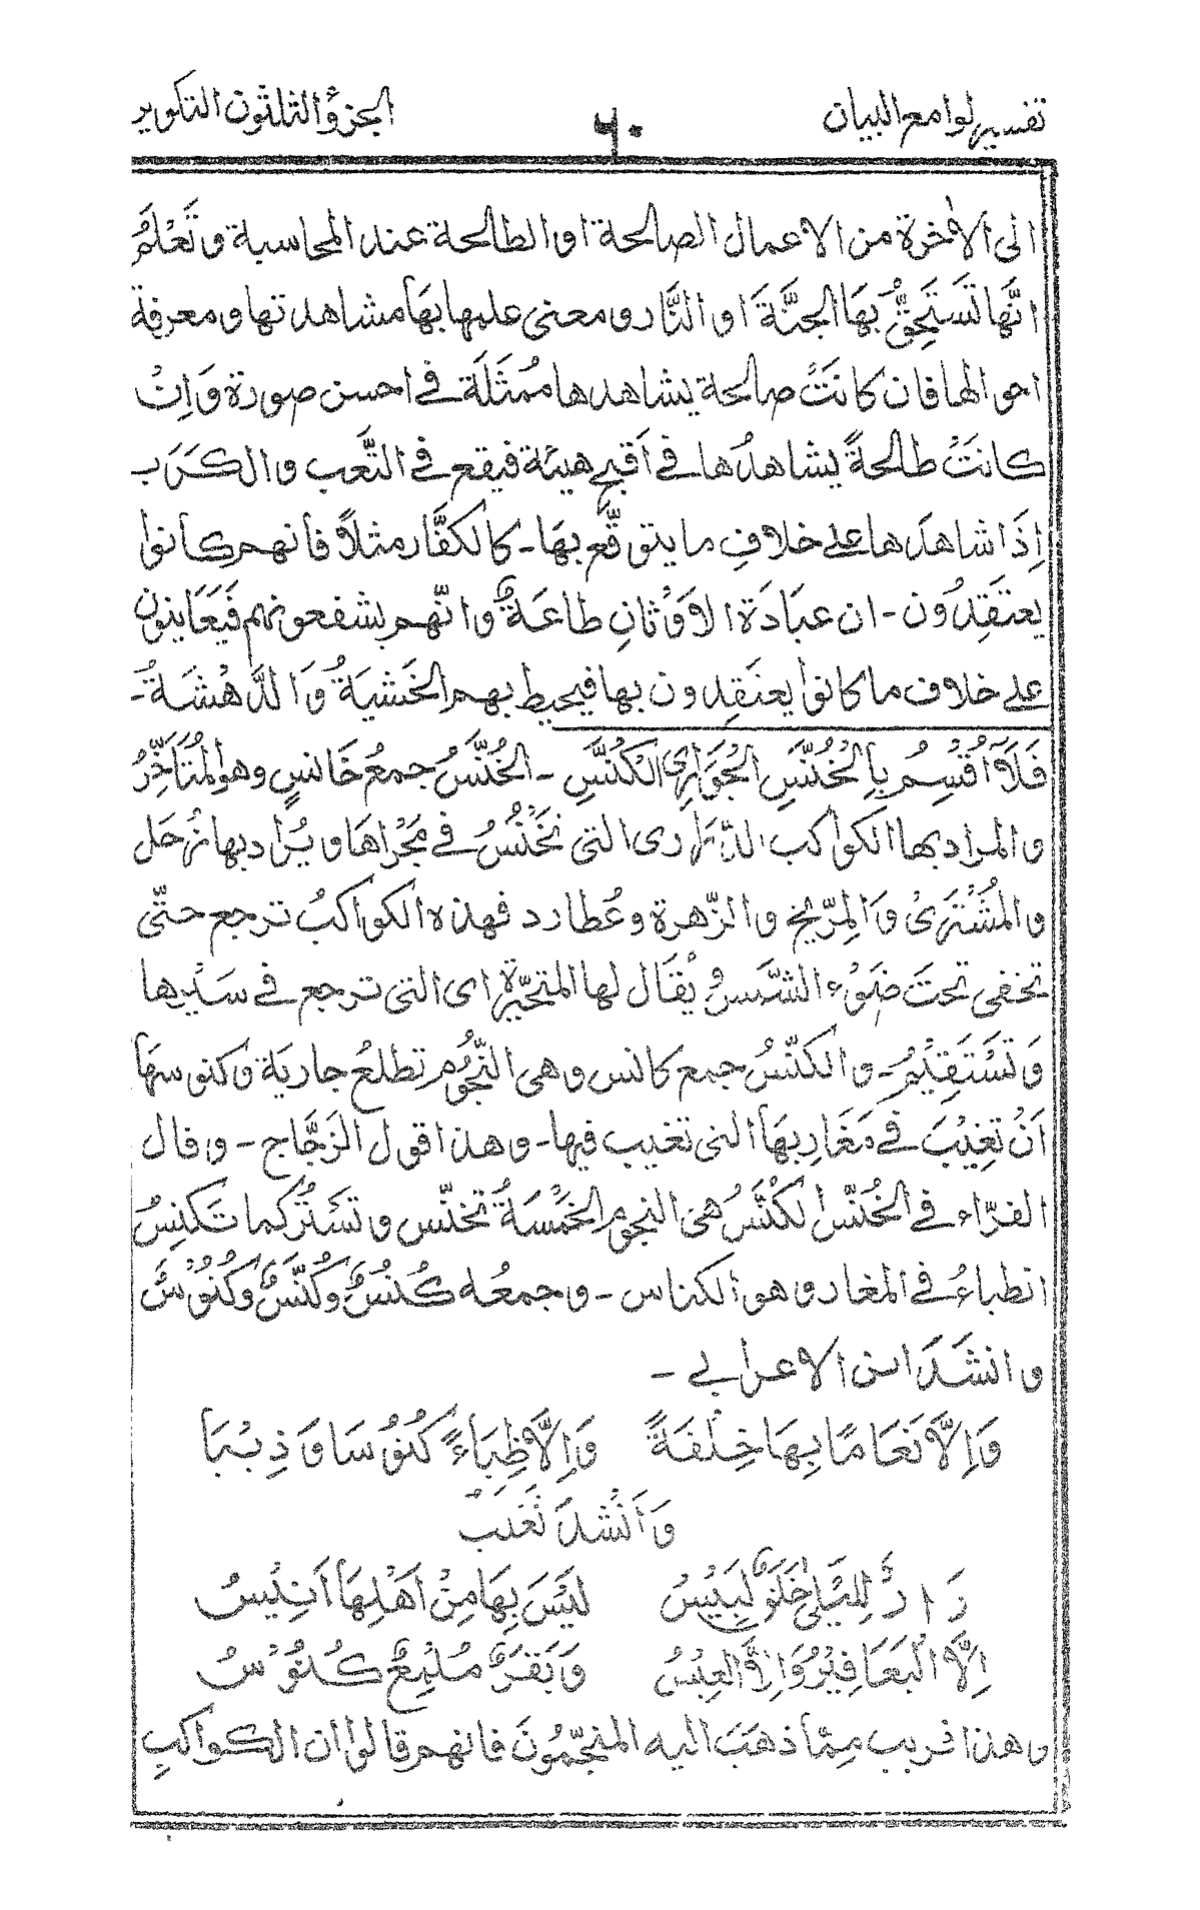 تفسير لوامع البيان ٦٠ الجزؤ الثلثون التكوير
الى الاٰخرة من الاعمال الصالحة او الطالحة عند المحاسبة و تَعْلَمُ
انَّها تَستَحِقُّ بهَا الجنَّةَ او النَّار و معنى علمها بهَا مشاهدتها و معرفة
احوالها فان كانَتْ صالحة يشاهدها مُمثَلَة فى احسن صورة وَ اِنْ
كانَتْ طالحةً يشاهدُها فى اَقبحِ هيئة فيقع فى التَّعب و الكَرَب
اِذَا شاهدَها على خلافِ ما يتوقَّع بهَا - كالكفَّار مثلاً فانهم كانوا
يعتقِدُون - ان عبَادَة الاَوْثانِ طاعَةٌ و انّهم يشفعونهم فَيَعَاينون
على خلاف ما كانوا يعتقِدون بها فيحيط بهم الخَشيَةُ وَ الدَّهْشَةُ -
فَلَآ اُقْسِمُ بِالْخُنَّسِ الْجَوَارِى الْكُنَّسِ - الخُنَّسُ جمعُ خَانسٍ و هو المُتَاَخِّرُ
و المراد بها الكواكب الدَّرَارى التى تَخْنُسُ فى مَجْراهَا و يُراد بها زُحَل
و المُشْتَرِىْ وَ المِرّيخ و الزّهرة و عُطارد فهذه الكواكبُ ترجع حتّى
تخفى تحتَ ضَوْء الشَّمس و يُقَال لها المتحيّرة اى التى ترجع فى سَيْرِها
وَ تَسْتَقِيْمُ - و الكنّسُ جمع كانس و هى النّجُوم تطلعُ جاريَة و كنوسهَا
اَنْ تغِيْبَ فى مَغَارِبهَا التى تغيب فيها - و هذا قول الزَجَّاج - و قال
الفرّاء فى الخُنّس الكُنَّسُ هى النجوم الخَمْسَةُ تخنّس و تَسْتُرُ كما تَكنِسُ
الظباءُ فى المغار و هو الكناس - و جمعُه كُنُسٌ و كُنَّسٌ و كُنُوْسٌ
و انشَدَ ابن الاعرابى -
وَ اِلَّا نَعَامًا بِهَا خِلْفَةً وَ اِلَّا ظِبَاءً كُنُوْسَا وَ ذِيْبَا
وَ اَنْشدَ ثَعْلَب
دَارٌ لِلَيْلٰى خَلَقٌ لَبِيْسُ لَيْسَ بِهَا مِنْ اَهْلِهَا اَنِيْسُ
اِلَّا الْيَعَافِيْرُ وَ اِلَّا الْعِيْسُ وَ بَقَرٌ مُلَمَّعٌ كُنُوْسُ
و هذا قريب مِمَّا ذهَبَ اليه المنجّمُونَ فانهم قالوا ان الكواكبِ